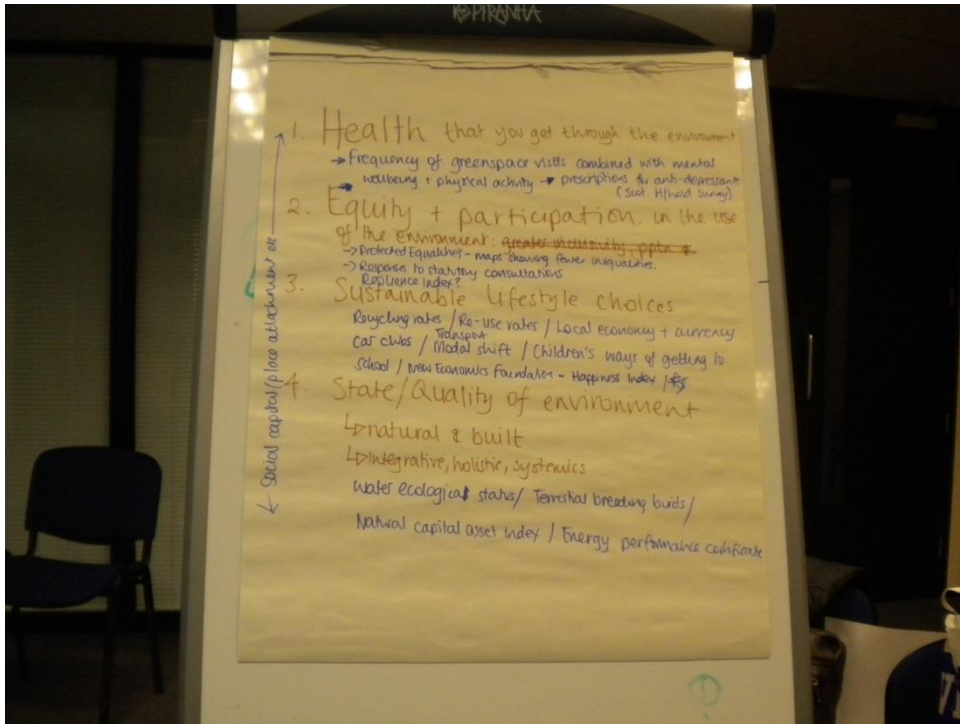 PIRANHA
1. Health that you get through the environment
→ Frequency of greenspace visits combined with mental
wellbeing + physical activity → prescriptions for anti-depressant
(Scot. H/hold survey)
2. Equity + participation. in the use
of the environment: greater inclusivity, pptn &
→ Protected Equalities - maps showing fewer inequalities.
→ Responses to statutory consultations
Resilience Index?
3. Sustainable lifestyle choices
Recycling rates / Re-use rates / Local economy + currency
car clubs / Transport Modal shift / Children's ways of getting to
school / New Economics Foundation - Happiness Index /
4. State/Quality of environment
↳ natural & built
↳ Integrative, holistic, systemics
Water ecological status / Terrestrial breeding birds /
Natural capital asset index / Energy performance certificate
← Social capital/place attachment etc →
1